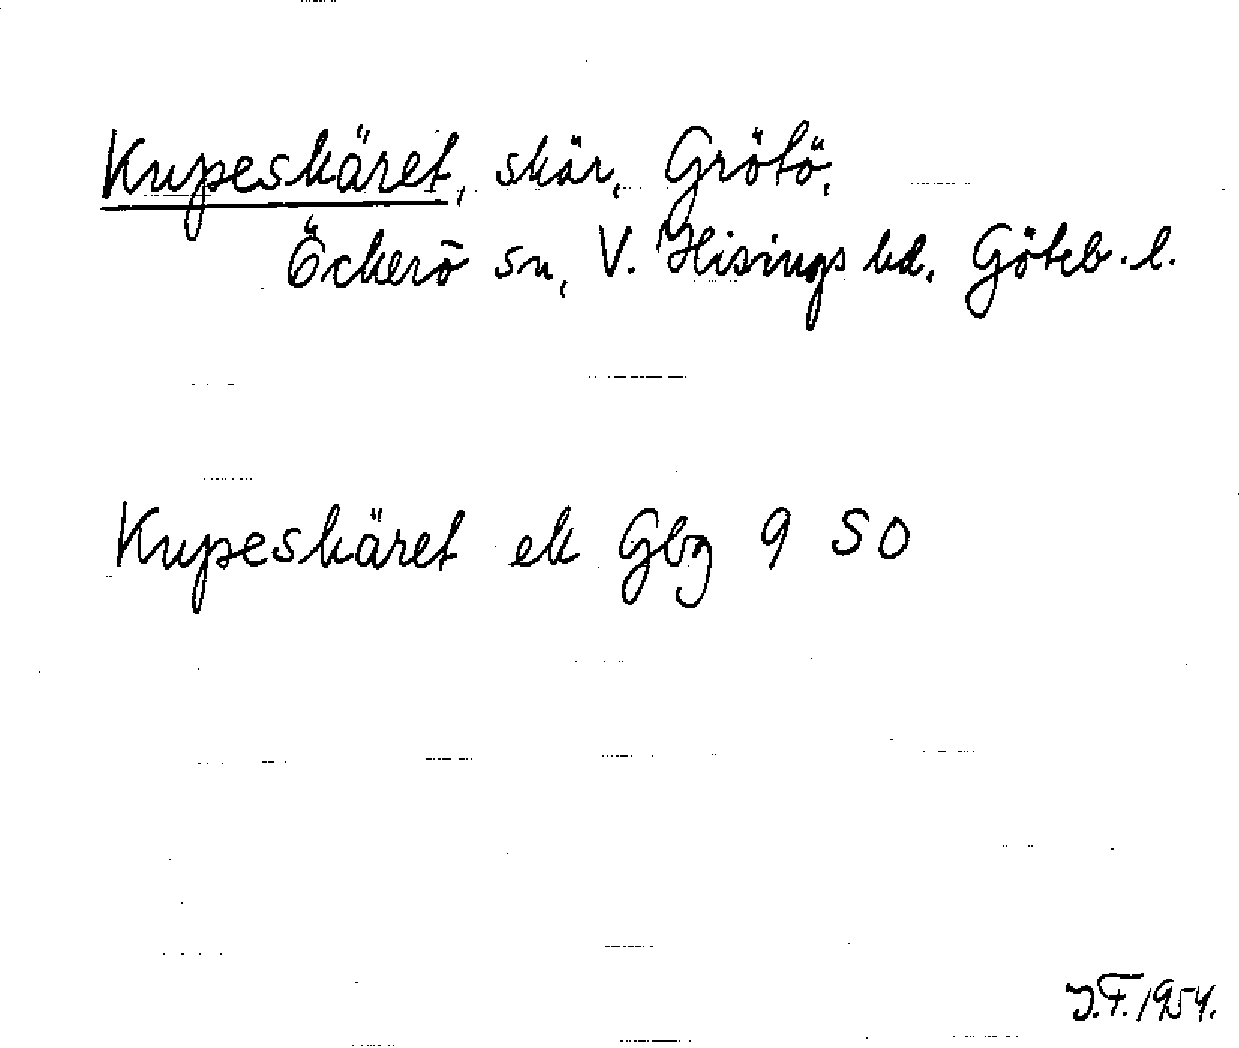 Kupeskäret, skär, Grötö,
Öckerö sn, V. Hisings hd, Göteb. l.
Kupeskäret ek Gbg 9 SO
J.F. 1954.